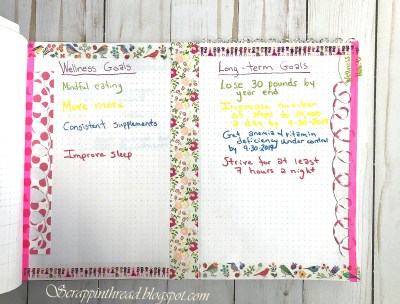 Wellness Goals
Mindful eating
Move more
Consistent supplements
Improve sleep
Long-term Goals
Lose 30 pounds by
year end
Increase number
of steps to 10,000
a day by 9-30-2019
Get anemia & vitamin
deficiency under control
by 9-30-2019
Strive for at least
7 hours a night
Scrappinthread.blogspot.com